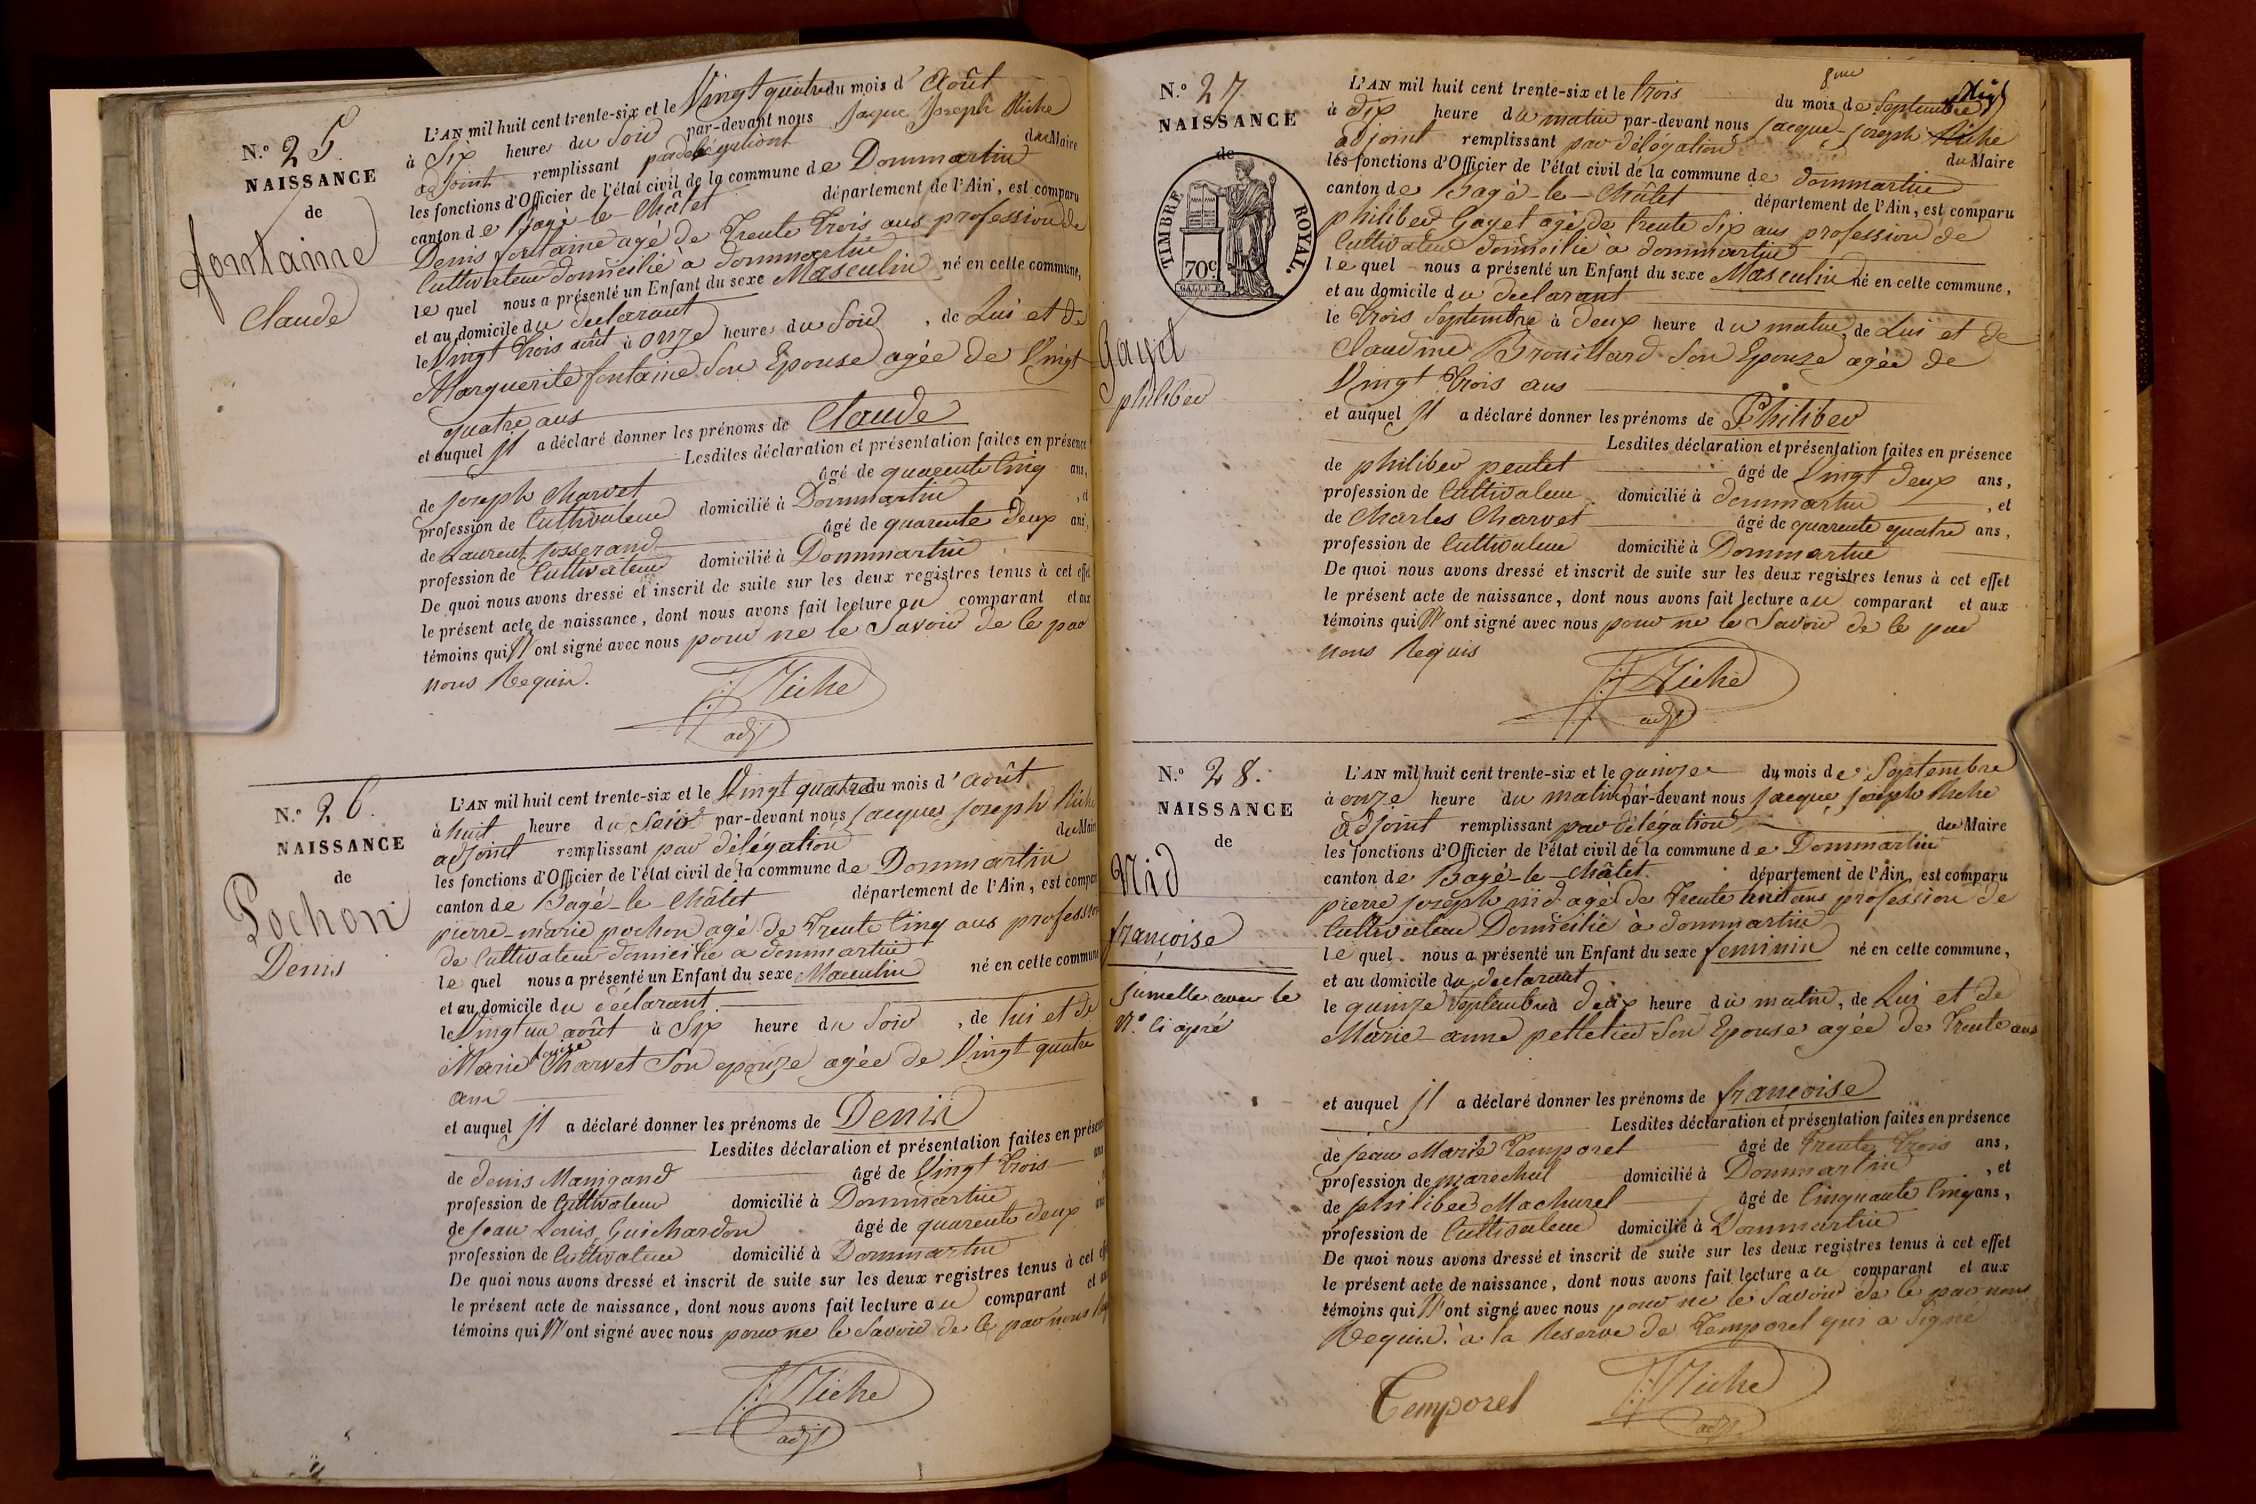 N.º 25.
NAISSANCE
de
fontaine
Claude
L'AN mil huit cent trente-six et le Vingt quatre du mois d' Août
à Six heures du Soir par-devant nous Jaque Joseph Riche
adjoint remplissant par délégationt du Maire
les fonctions d'Officier de l'état civil de la commune de Dommartin
canton de Bagé-le-Châlet département de l'Ain, est comparu
Denis fontaine agé de Trente Trois ans profession de
Cultivateur domicilié a dommartin
le quel nous a présenté un Enfant du sexe Masculin né en cette commune,
et au domicile du declarant
le Vingt trois août à onze heures du Soir, de Lui et de
Marguerite fontaine Son Epouse agée de Vingt
quatre ans
et auquel Il a déclaré donner les prénoms de Claude
Lesdites déclaration et présentation faites en présence
de joseph Charvet âgé de quarente Cinq ans,
profession de Cultivateur domicilié à Dommartin, et
de Laurent josserand âgé de quarente Deux ans,
profession de Cultivateur domicilié à Dommartin
De quoi nous avons dressé et inscrit de suite sur les deux registres tenus à cet effet
le présent acte de naissance, dont nous avons fait lecture au comparant et aux
témoins qui N'ont signé avec nous pour ne le Savoir de ce par
nous Requis.
J:J Riche
adjt
N.º 26.
NAISSANCE
de
Pochon
Denis
L'AN mil huit cent trente-six et le Vingt quatre du mois d' août
à huit heure du Soir par-devant nous Jacques joseph Riche
adjoint remplissant par délégation du Maire
les fonctions d'Officier de l'état civil de la commune de Dommartin
canton de Bagé-le-Châlet département de l'Ain, est comparu
pierre-marie pochon agé de Trente Cinq ans profession
de Cultivateur domicilié a dommartin
le quel nous a présenté un Enfant du sexe Masculin né en cette commune
et au domicile du déclarant.
le Vingt un août à Six heure du Soir, de lui et de
Marie louise Charvet Son epouze agée de Vingt-quatre
ans
et auquel Il a déclaré donner les prénoms de Denis
Lesdites déclaration et présentation faites en présence
de denis Manigand âgé de Vingt trois ans
profession de Cultivateur domicilié à Dommartin
de jean Louis Guichardon âgé de quarente deux ans
profession de Cultivateur domicilié à Dommartin
De quoi nous avons dressé et inscrit de suite sur les deux registres tenus à cet effet
le présent acte de naissance, dont nous avons fait lecture au comparant et aux
témoins qui N'ont signé avec nous pour ne le Savoir de ce par nous
J:J Riche
adjt
N.º 27
NAISSANCE
de
TIMBRE ROYAL.
70 c
Gayet
philiber
L'AN mil huit cent trente-six et le trois du mois de Septembre
à dix heure du matin par-devant nous jacque joseph Riche
adjoint remplissant par délégation du Maire
les fonctions d'Officier de l'état civil de la commune de dommartin
canton de Bagé-le-Châlet département de l'Ain, est comparu
philiber Gayet agé de trente Six ans profession de
Cultivateur domicilié a dommartin
le quel nous a présenté un Enfant du sexe Masculin né en cette commune,
et au domicile du declarant
le trois Septembre à deux heure du matin, de Lui et de
Claudine Brouillard Son Epouze agée de
Vingt trois ans
et auquel Il a déclaré donner les prénoms de Philiber
Lesdites déclaration et présentation faites en présence
de philiber peutet âgé de Vingt deux ans,
profession de Cultivateur domicilié à dommartin, et
de Charles Charvet âgé de quarente quatre ans,
profession de Cultivateur domicilié à Dommartin
De quoi nous avons dressé et inscrit de suite sur les deux registres tenus à cet effet
le présent acte de naissance, dont nous avons fait lecture au comparant et aux
témoins qui N'ont signé avec nous pour ne le Savoir de ce par
nous Requis
J:J Riche
adjt
N.º 28.
NAISSANCE
de
Nid
françoise
jumelle avec le
N.º Ci apré
L'AN mil huit cent trente-six et le quinze du mois de Septembre
à onze heure du matin par-devant nous jacque joseph Riche
adjoint remplissant par délégation du Maire
les fonctions d'Officier de l'état civil de la commune de Dommartin
canton de Bagé-le-Châlet. département de l'Ain, est comparu
pierre joseph nid agé de Trente huit ans profession de
Cultivateur Domicilié à dommartin
le quel. nous a présenté un Enfant du sexe feminin né en cette commune,
et au domicile du declarant
le quinze Septembre à deux heure du matin, de Lui et de
Marie-anne pelletier Son Epouse agée de Trente ans
et auquel Il a déclaré donner les prénoms de françoise
Lesdites déclaration et présentation faites en présence
de jean Marie Temporel âgé de Trente Trois ans,
profession de marechal domicilié à Dommartin, et
de philiber Machurel âgé de Cinquante Cinq ans,
profession de Cultivateur domicilié à Dommartin
De quoi nous avons dressé et inscrit de suite sur les deux registres tenus à cet effet
le présent acte de naissance, dont nous avons fait lecture au comparant et aux
témoins qui N'ont signé avec nous pour ne le Savoir de ce par nous
Requis. à la Reserve de Temporel qui a Signé
Temporel
J:J Riche
adjt